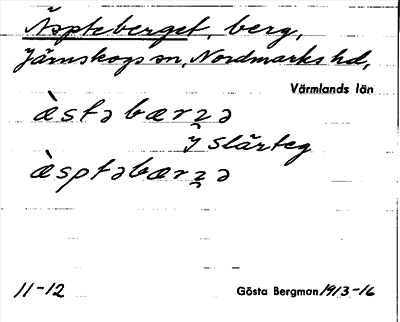 Äspteberget, berg,
Järnskogs sn, Nordmarks hd,
Värmlands län
àstəbærʒə
i Slärteg
àsptəbærʒə
11-12
Gösta Bergman 1913-16